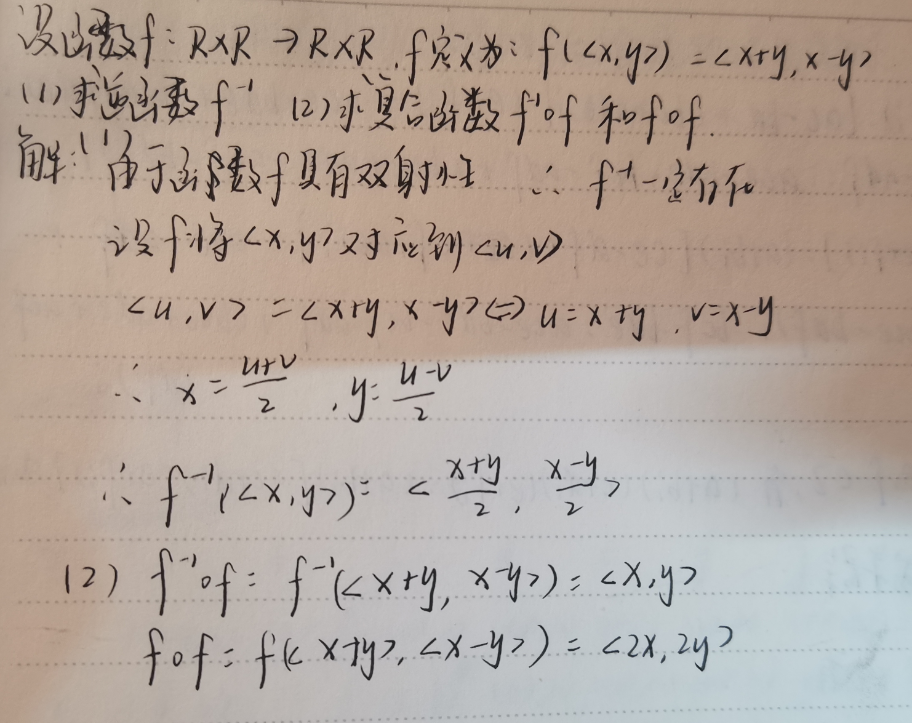 设函数f: R×R→R×R, f定义为: f(<x,y>) = <x+y, x-y>
(1)求逆函数f⁻¹ (2)求复合函数f⁻¹∘f和f∘f.
解:(1)由于函数f具有双射性 ∴ f⁻¹一定存在
设f将<x,y>对应到<u,v>
<u,v> = <x+y, x-y> ⇔ u=x+y, v=x-y
∴ x = (u+v)/2 , y= (u-v)/2
∴ f⁻¹(<x,y>)= < (x+y)/2, (x-y)/2 >
(2) f⁻¹∘f = f⁻¹(<x+y, x-y>) = <x,y>
f∘f = f(<x+y>, <x-y>) = <2x,2y>